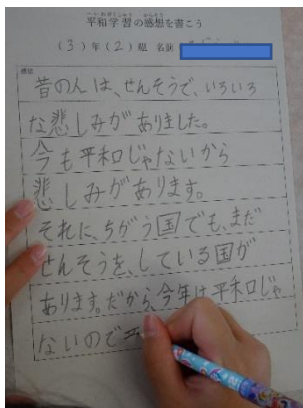 平和学習の感想を書こう
(3)年(2)組 名前
感想
昔の人は、せんそうで、いろいろ
な悲しみがありました。
今も平和じゃないから
悲しみがあります。
それに、ちがう国でも、まだ
せんそうを、している国が
あります。だから、今年は平和じゃ
ないので